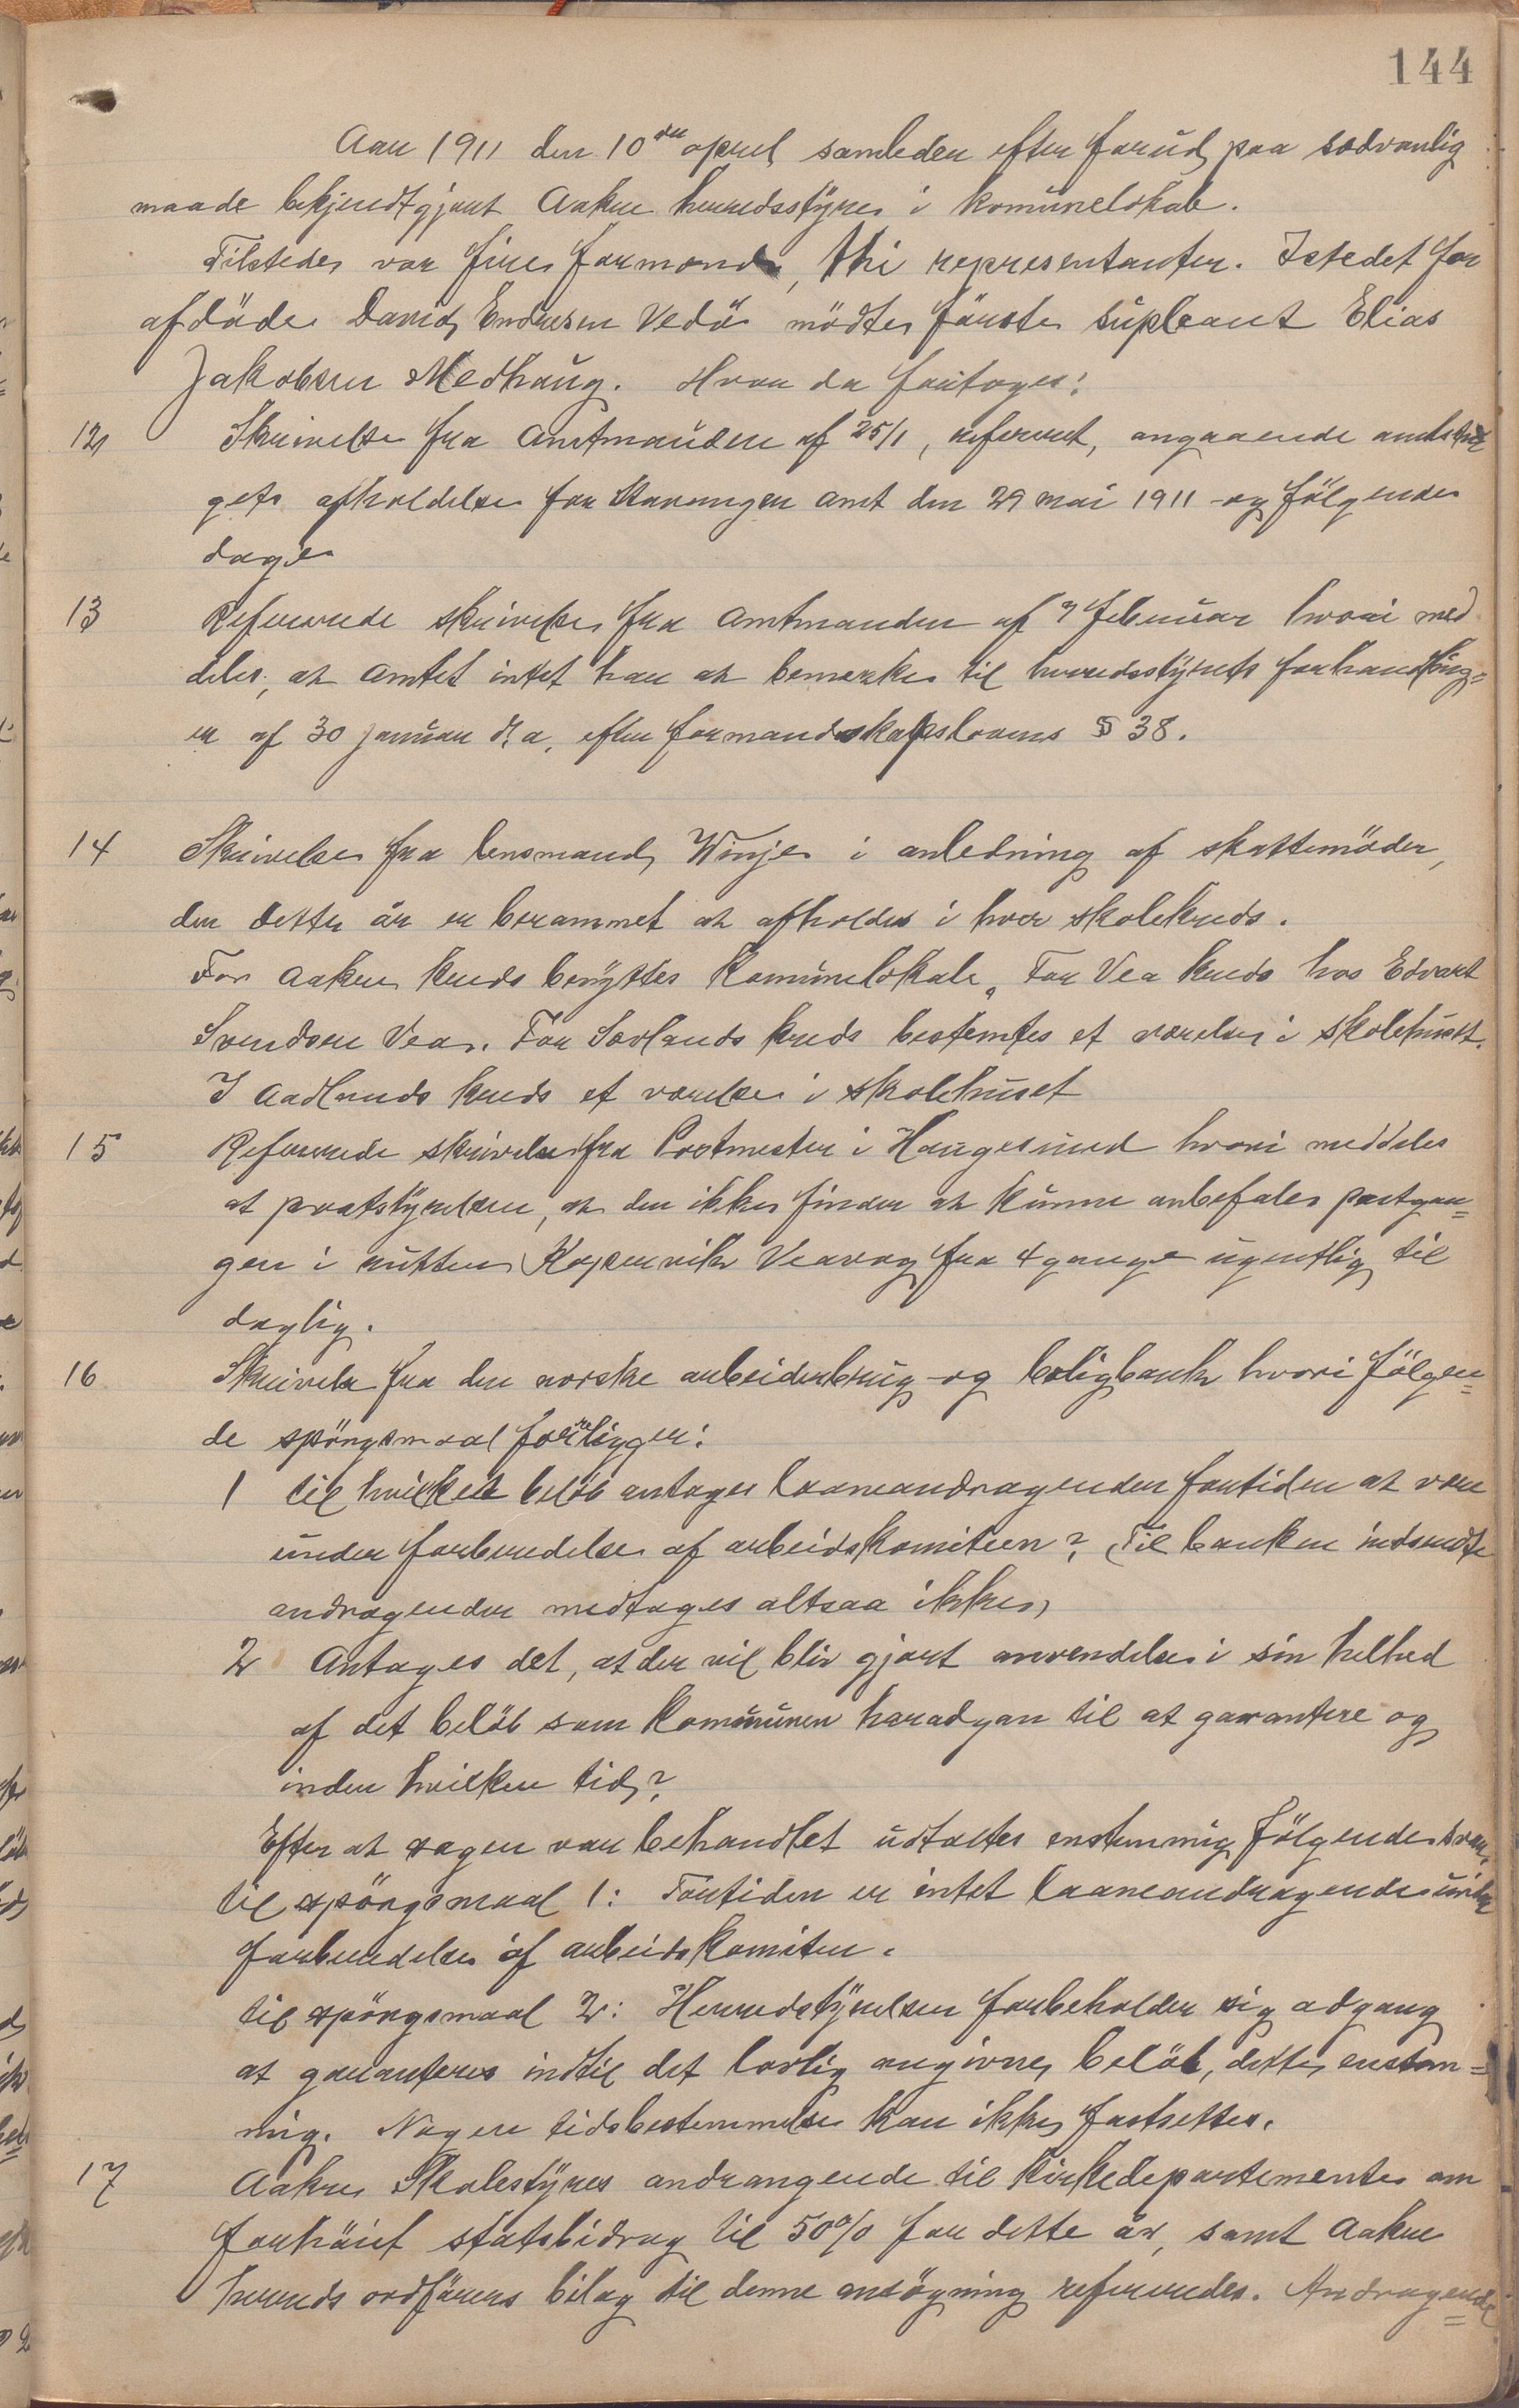 144
Aar 1911 den 10de april samledes efter forud paa sedvanlig
maade bekjendtgjort Aakre herredsstyre i komunelokale.
Tilstede var fire formænd, thi representanter. Istedet for
afdöde David Endresen Vedö mödte förste supleant Elias
Jakobsen Medhaug. Hvor da foretoges:
12 Skrivelse fra Amtmanden af 25/1, referert, angaaende amtsthin
gets afholdelse for Stavanger amt den 29 mai 1911 og fölgende
dage
13 Refererede skrivelse fra Amtmanden af 9 februar hvori med
deles, at Amtet intet har at bemerke til herredsstyrets forhandling=
er af 30 januar d. a. efter formandskapslovens § 38.
14 Skrivelse fra lensmand Winje i anledning af skattemöder,
der dette år er berammet at afholdes i hver skolekreds.
For Aakre kreds benyttes Komunelokale. For Vea kreds hos Edvart
Svendsen Vea. For Sørlands kreds bestemtes et værelse i skolehuset.
I Aadlands kreds et værelse i skolehuset
15 Refererede skrivelse fra Postmester i Haugesund hvori meddeles
at poststyrelsen, at den ikke finder at kunne anbefale postgan=
gen i rutten Kopervik Veavag fra 4 gange ugentlig til
daglig.
16 Skrivelse fra den norske arbeiderbrug- og boligbank hvori fölgen=
de spörgsmaal foreligger:
1 til hvilket belöb antages laaneandragender fortiden at være
under forberedelse af arbeidskomiteen? Til banken indsendte
andragender medtages altsaa ikke,
2 Antages det, at der vil bliv gjort anvendelse i sin helhed
af det belöb som Kommunen har adgan til at garantere og
inden hvilken tid?
Efter at sagen var behandlet udtaltes enstemmig fölgende svar,
til spörgsmaal 1: Fortiden er intet laaneandragende under
forberedelse af arbeidskomiteen.
til spörgsmaal 2: Herredstyrelsen forbeholder sig adgang
at garanteres indtil det lovlig angivne belöb, dette enstem=
mig. Nogen tidsbestemmelse kan ikke fastsettes.
17 Aakre Skolestyres andrangende til Kirkedepartemente om
forhöiet statsbidrag til 50% for dette år, samt Aakre
herreds ordförers bilag til denne ansögning refereredes. Andragende=